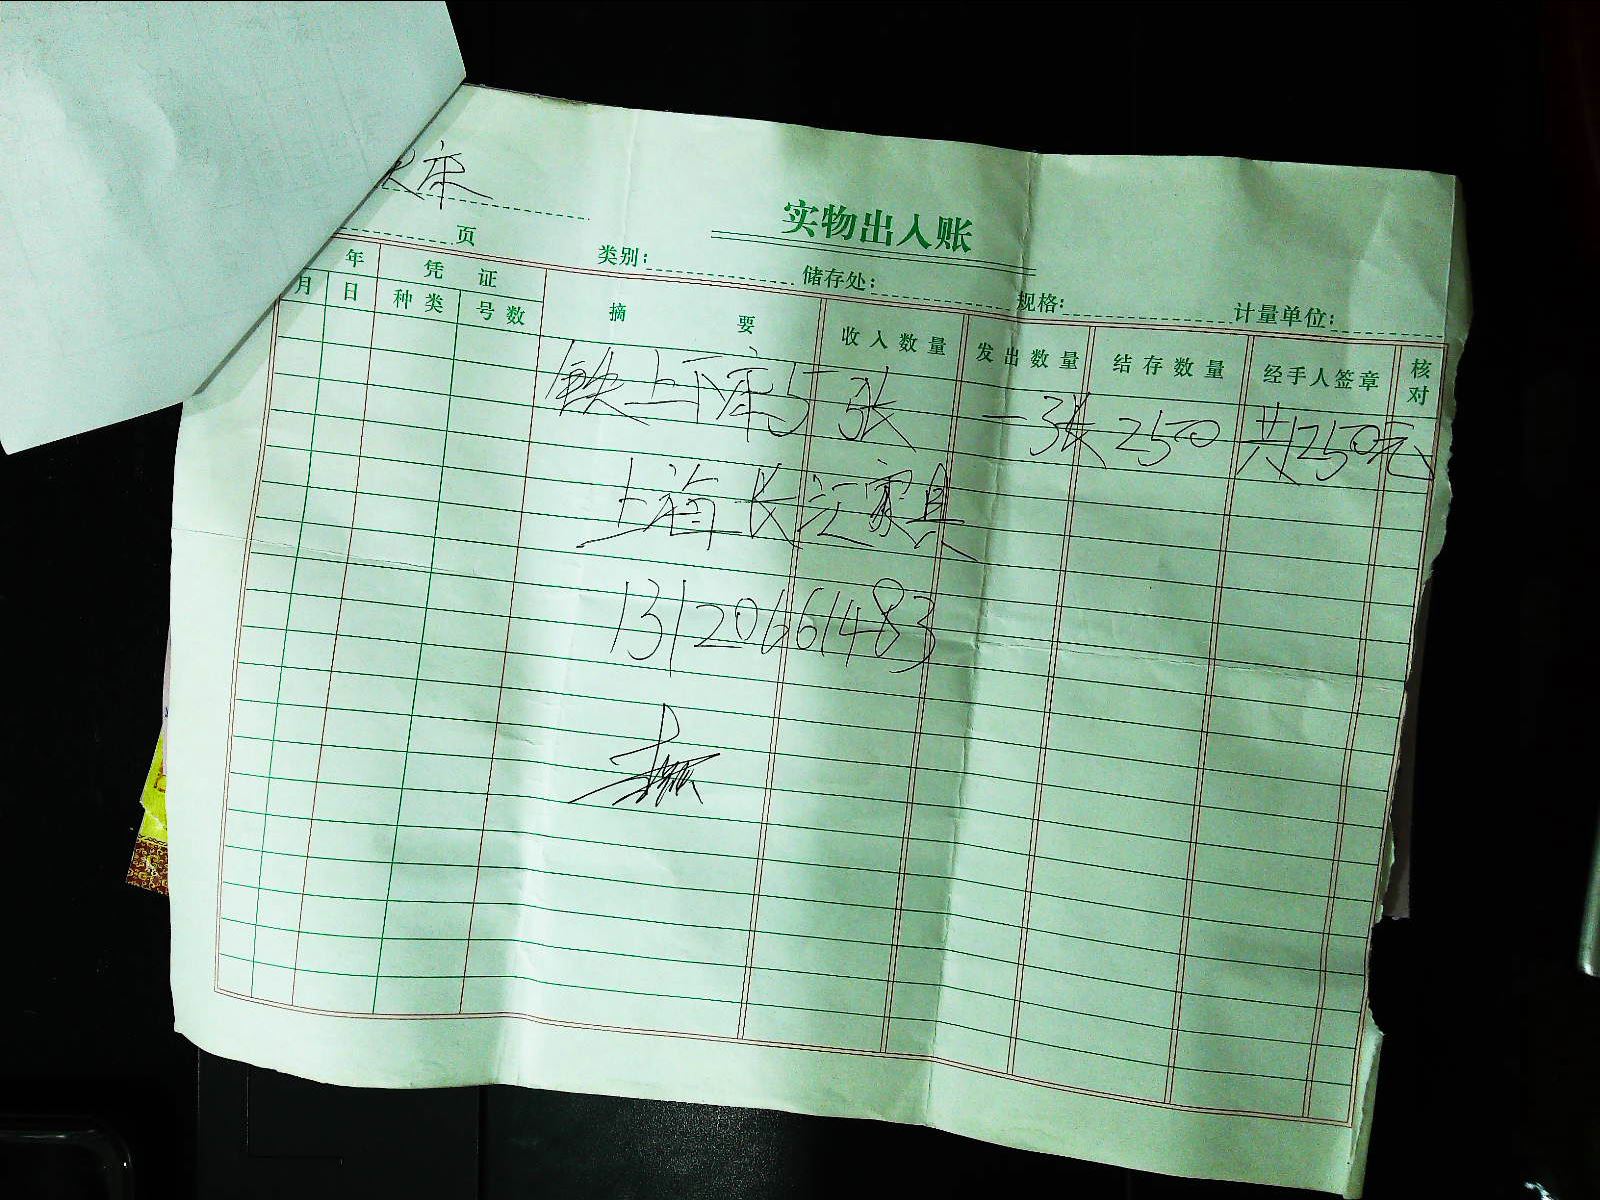 床
实物出入账
页 类别： 储存处： 规格： 计量单位：
年 凭证 摘要 收入数量 发出数量 结存数量 经手人签章 核对
月 日 种类 号数
铁上下床5张 一张250 共1250元
上海长江家具
13120661483